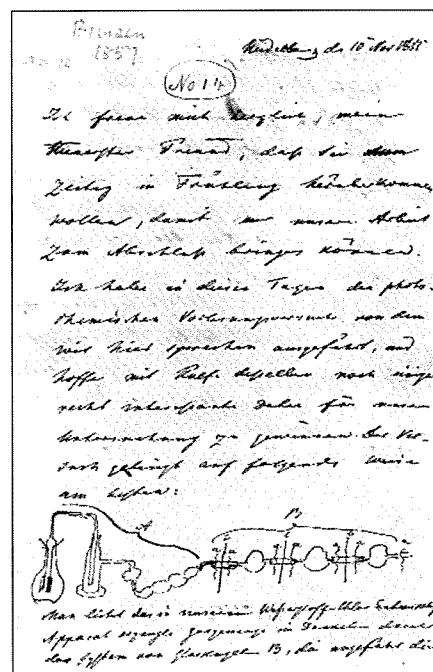 Bunsen
1857
No 14
Heidelberg d. 10 Nov
Ich freue mich herzlich, mein
theuerster Freund, daß Sie
zeitig im Frühling herüberkommen
wollen, damit wir unsere Arbeit
zum Abschluß bringen können.
Ich habe in diesen Tagen die photo-
chemischen Vorlesungsversuche von denen
wir hier sprachen ausgeführt, und
hoffe mit Hülfe derselben noch einige
recht interessante Data für unsere
Untersuchung zu gewinnen. Der Ver-
such gelingt auf folgende Weise
am besten:
A
B
Man leitet das in unserem
Apparat erzeugte Gasgemenge im Dunkeln durch
das System von Glaskugeln B, die ungefähr die